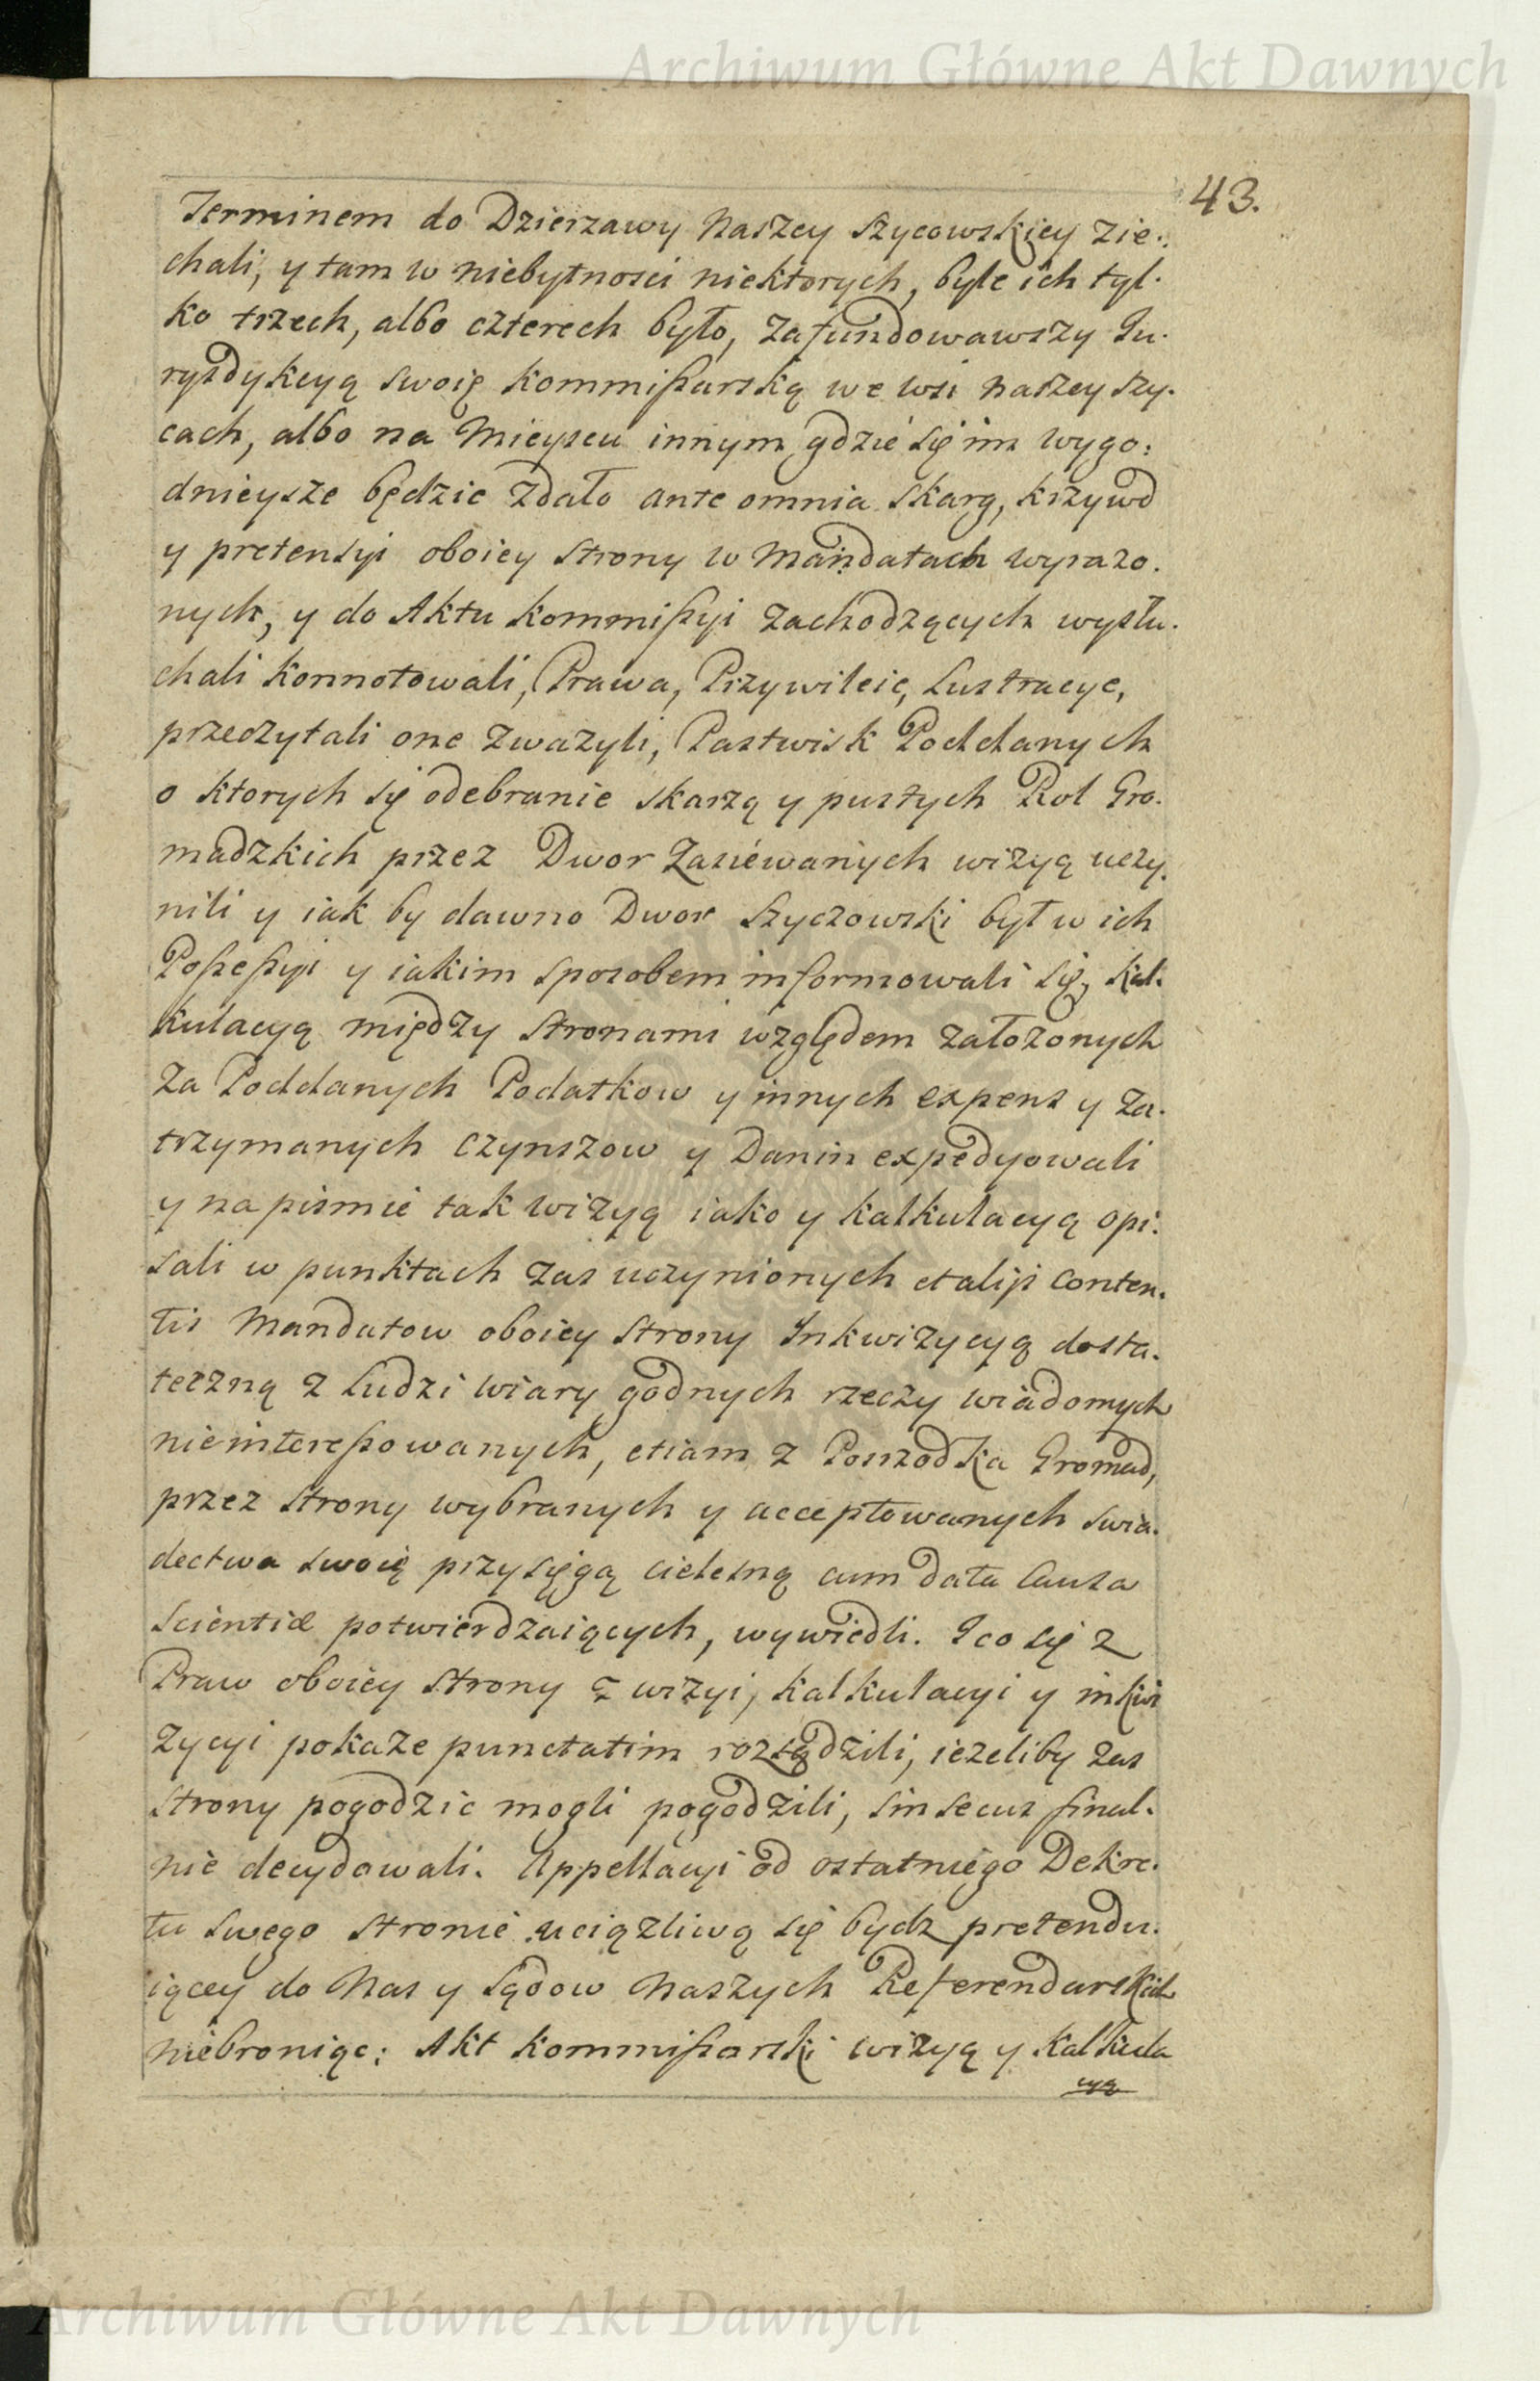 Archiwum Główne Akt Dawnych
43.
Terminem do Dzierzawy Naszey Szycowskiey zie.
chali, y tam w niebytnosci niektorych, byle ich tyl.
ko trzech, albo czterech było, zafundowawszy Ju.
rysdykcyą swoię kommißarską we wsi naszey Szy.
cach, albo na Mieyscu innym gdzie się im wygo:
dnieysze będzie zdało ante omnia skarg, krzywd
y pretensyi oboiey strony w Mandatach wyrazo.
nych, y do Aktu kommißyi zachodzących wysłu.
chali konnotowali, Prawa, Przywileie, Lustracye,
przeczytali one zwazyli, Pastwisk Poddanych
o ktorych się odebranie skarzą y pustych Rol Gro.
madzkich przez Dwor zasiewanych wizyą uczy.
nili y iak by dawno Dwor Szyczowski był w ich
Poßeßyi y iakim sposobem informowali się, kal.
kulacyą między stronami względem założonych
za Poddanych Podatkow y innych expens y za.
trzymanych czynszow y Danin expedyowali
y na pismie tak wizyą iako y kalkulacyą opi.
sali w punktach zas uczynionych et alijs conten.
tis Mandatow oboiey strony Inkwizycyą dosta.
teczną z Ludzi wiary godnych rzeczy wiadomych
nieintereßowanych, etiam z Poszrodka Gromad,
przez strony wybranych y acceptowanych swia.
dectwa swoię przysięgą cielesną cum data causa
scientiæ potwierdzaiących, wywiedli. I co się z
Praw oboiey strony z wizyi, kalkulacyi y inkwi
zycyi pokaze punctatim rozsądzili, iezeliby zas
strony pogodzic mogli pogodzili, sin secus final.
nie decydowali. Appellacyi od ostatniego Dekre.
tu swego stronie uciązliwą się bydz pretendu.
iącey do Nas y Sądow Naszych Referendarskich
niebroniąc; Akt kommißarski wizyą y kalkula
cyą
Archiwum Główne Akt Dawnych